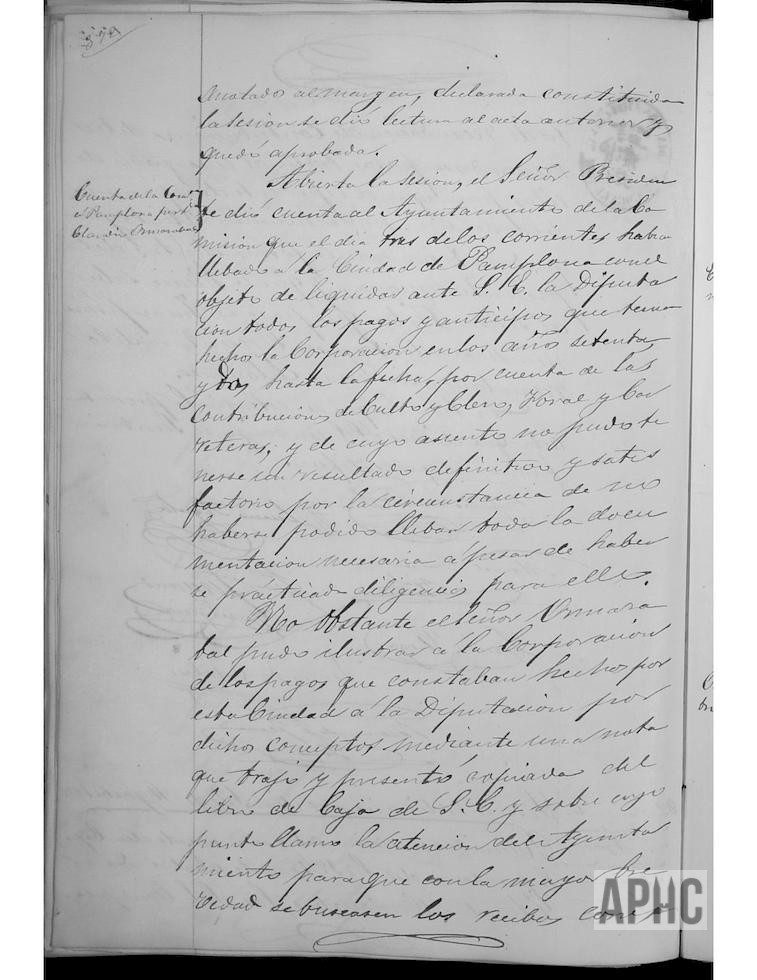 Anotado al margen, declarada constituida
la sesion se dió lectura al acta anterior y
quedó aprobada.
Cuenta de la Comn
á Pamplona por
Claudio Ormarabal
Abierta la Sesion, el Señor Presiden
te dió cuenta al Ayuntamiento de la Co
mision que el dia tres de los corrientes habia
llebado á la Ciudad de Pamplona con el
objeto de liquidar ante S. E. la Diputa
cion todos los pagos y anticipos que tenia
hechos la Corporacion en los años setenta
y dos hasta la fecha, por cuenta de las
contribuciones de Culto y Clero, Foral y Car
reteras; y de cuyo asunto no pudo te
nerse un resultado definitivo y satis
factorio por la circunstancia de no
haberse podido llebar toda la docu
mentacion necesaria á pesar de haber
se practicado diligencias para ello.
No obstante el Señor Ormara
bal pudo ilustrar á la Corporacion
de los pagos que constaban hechos por
esta Ciudad á la Diputacion por
dichos conceptos mediante una nota
que trajo y presentó copiada del
libro de Caja de S. E. y sobre cuyo
punto llamó la atencion del Ayunta
miento para que con la mayor bre
vedad se buscasen los recibos
APHC